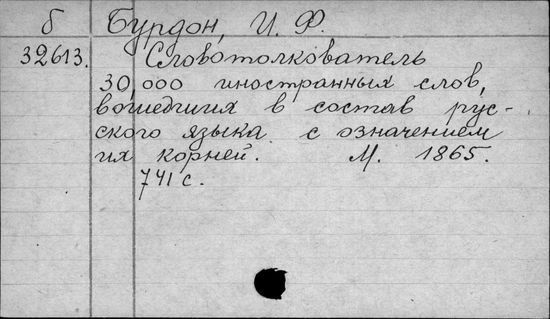 б Бурдон, И. Ф.
32613. Словотолкователь
30,000 иностранных слов,
вошедших в состав рус-
ского языка с означением
их корней. М. 1865.
741 с.